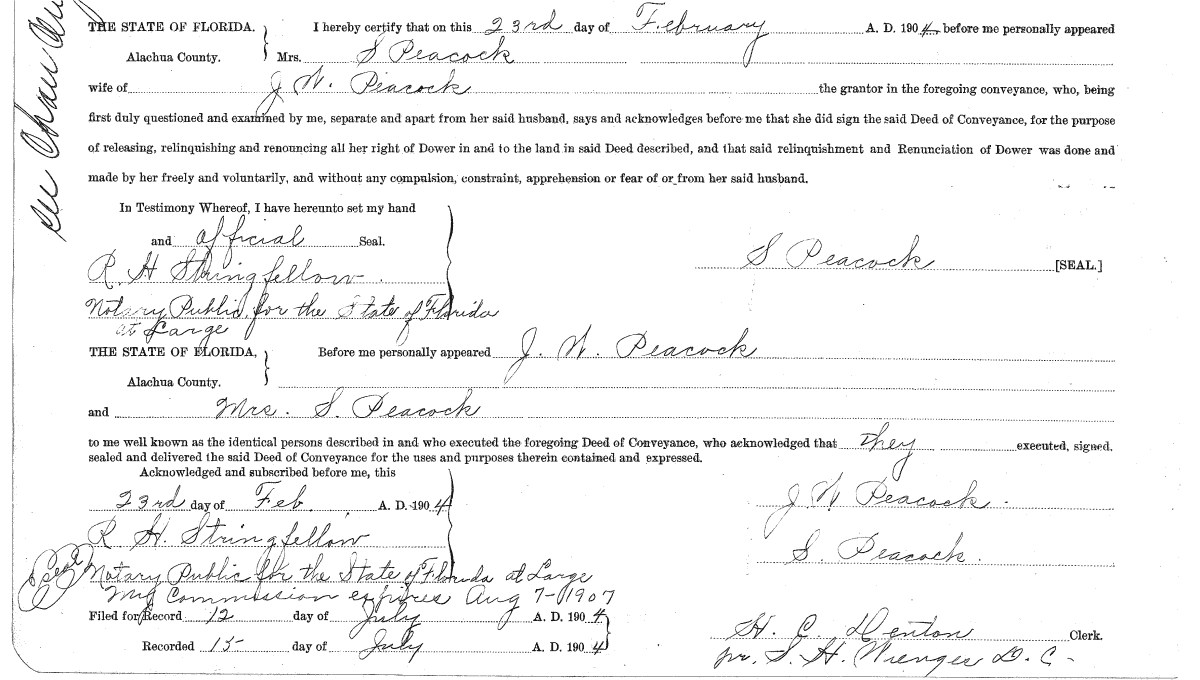 THE STATE OF FLORIDA. } I hereby certify that on this 23rd day of February A. D. 1904 before me personally appeared
Alachua County. Mrs. S Peacock
wife of J. W. Peacock the grantor in the foregoing conveyance, who, being
first duly questioned and examined by me, separate and apart from her said husband, says and acknowledges before me that she did sign the said Deed of Conveyance, for the purpose
of releasing, relinquishing and renouncing all her right of Dower in and to the land in said Deed described, and that said relinquishment and Renunciation of Dower was done and
made by her freely and voluntarily, and without any compulsion, constraint, apprehension or fear of or from her said husband.
In Testimony Whereof, I have hereunto set my hand
and official Seal.
S Peacock [SEAL.]
R. H Stringfellow
Notary Public for the State of Florida
at Large
THE STATE OF FLORIDA, } Before me personally appeared J. W. Peacock
Alachua County.
and Mrs. S. Peacock
to me well known as the identical persons described in and who executed the foregoing Deed of Conveyance, who acknowledged that they executed, signed,
sealed and delivered the said Deed of Conveyance for the uses and purposes therein contained and expressed.
Acknowledged and subscribed before me, this
23rd day of Feb. A. D. 1904
J W Peacock
R H. Stringfellow
S. Peacock.
Seal
Notary Public for the State of Florida at Large
My Commission expires Aug 7-1907
Filed for Record 12 day of July A. D. 1904
H. C. Denton Clerk.
Recorded 15 day of July A. D. 1904
pr. S. H. Wienges D. C-
see